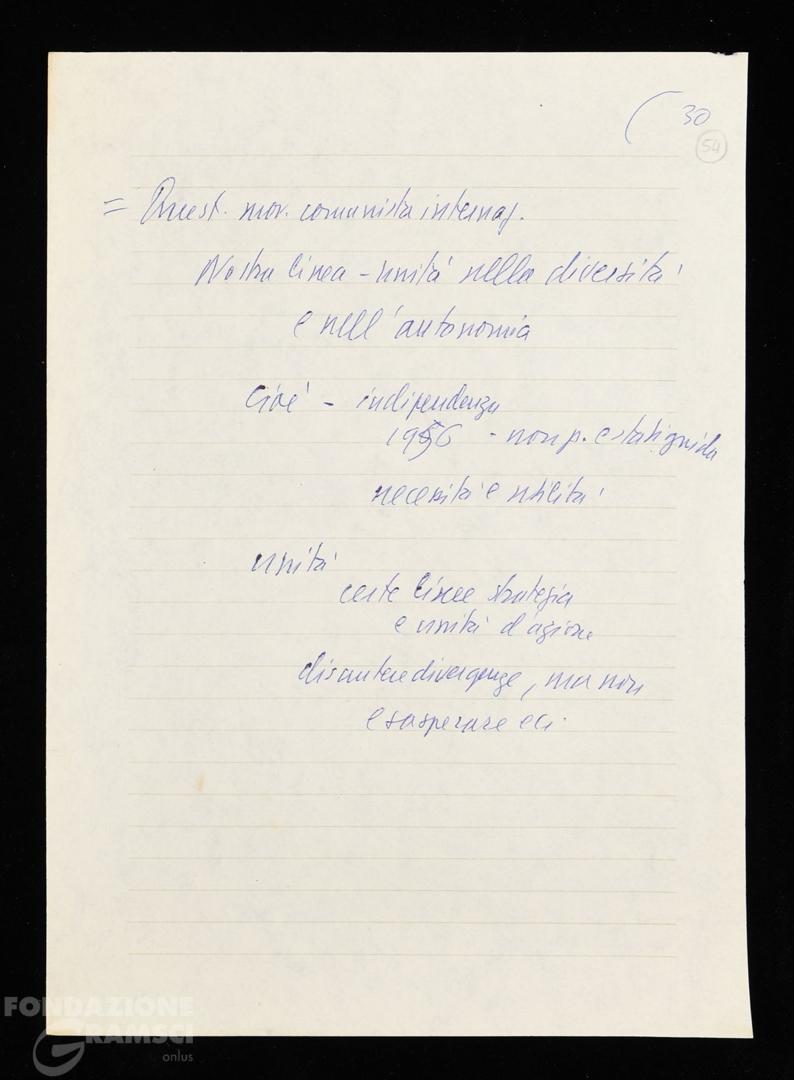 30
54
= Quest. mov. comunista internaz.
Nostra linea - unità nella diversità
e nell'autonomia
Cioè - indipendenza
1956 - non p. e stati guida
necessità e utilità
unità
certe linee strategia
e unità d'azione
discutere divergenze, ma non
esasperare ecc.
FONDAZIONE
GRAMSCI
onlus